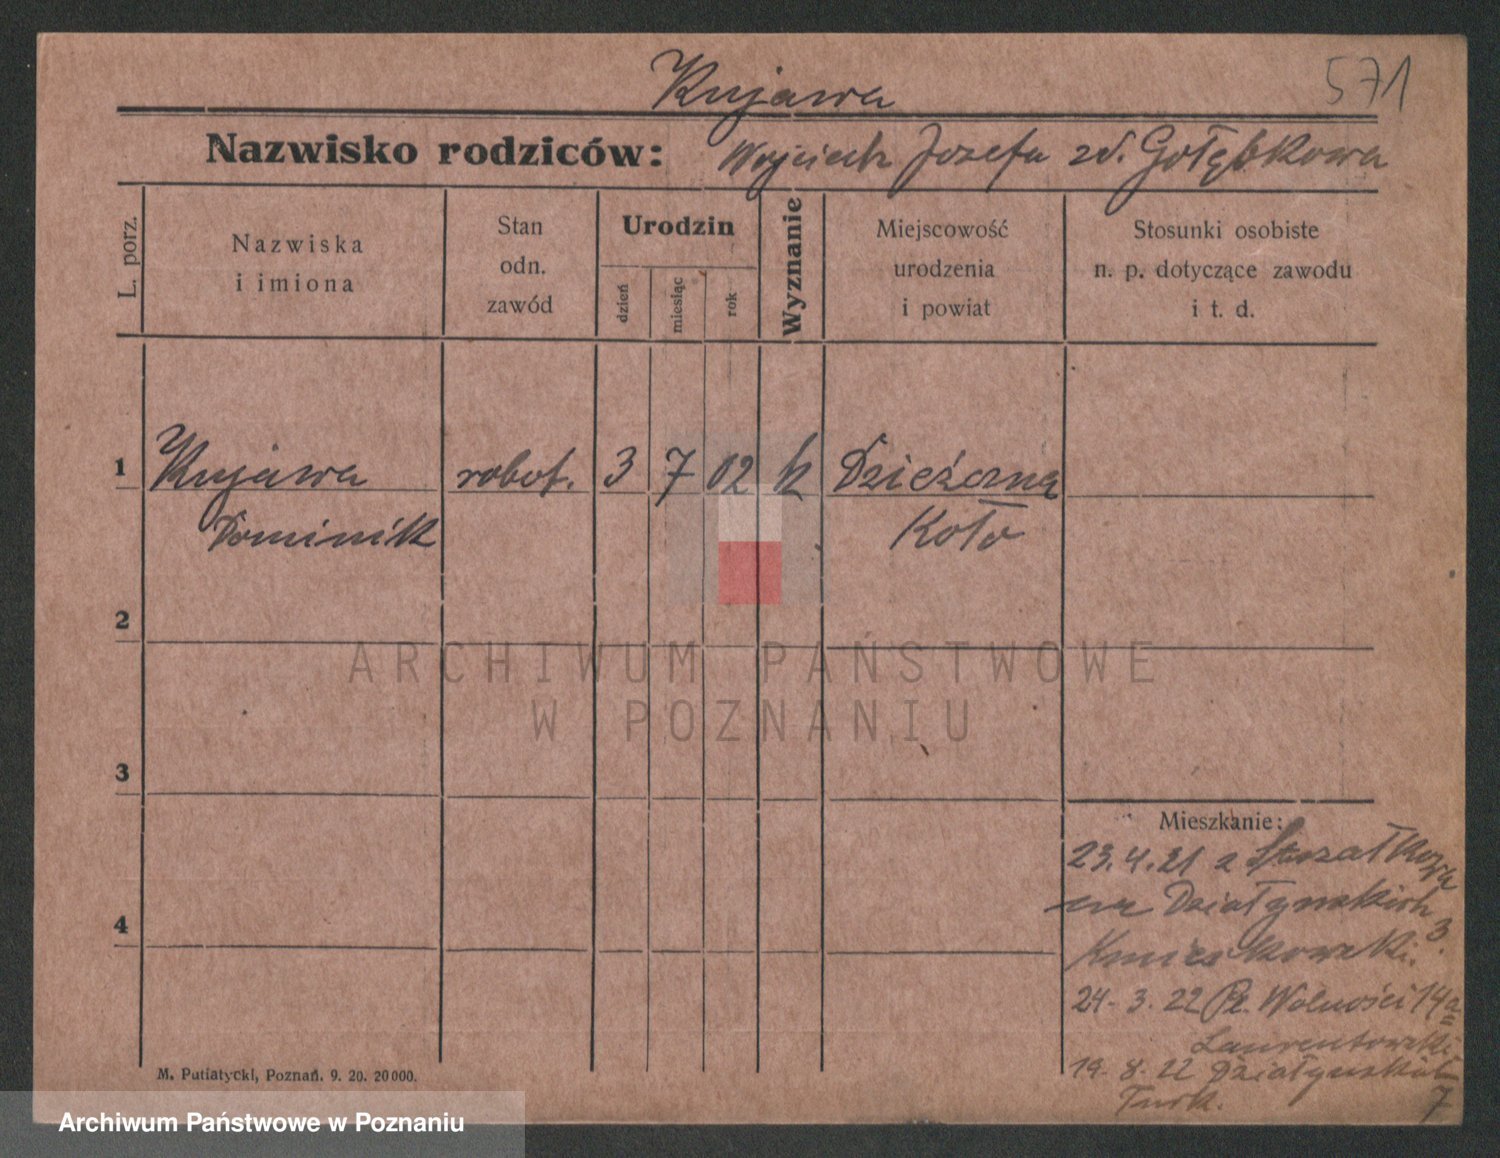 Kujawa
571
Nazwisko rodziców: Wojciech Józefa zd. Gołębkowa
L. porz.
Nazwiska
i imiona
Stan
odn.
zawód
Urodzin
dzień
miesiąc
rok
Wyznanie
Miejscowość
urodzenia
i powiat
Stosunki osobiste
n. p. dotyczące zawodu
i t. d.
1 Kujawa robot. 3 7 02 k Dzieżczną
Dominik Koło
2
ARCHIWUM PAŃSTWOWE
W POZNANIU
3
Mieszkanie:
23.4.21 z Strzałkowa
na Działyńskich 3.
4
24.3.22 Pl. Wolności 14a
Laurentowski
19.8.22 Działyńskich 7
Turk.
M. Putiatycki, Poznań. 9. 20. 20000.
Archiwum Państwowe w Poznaniu